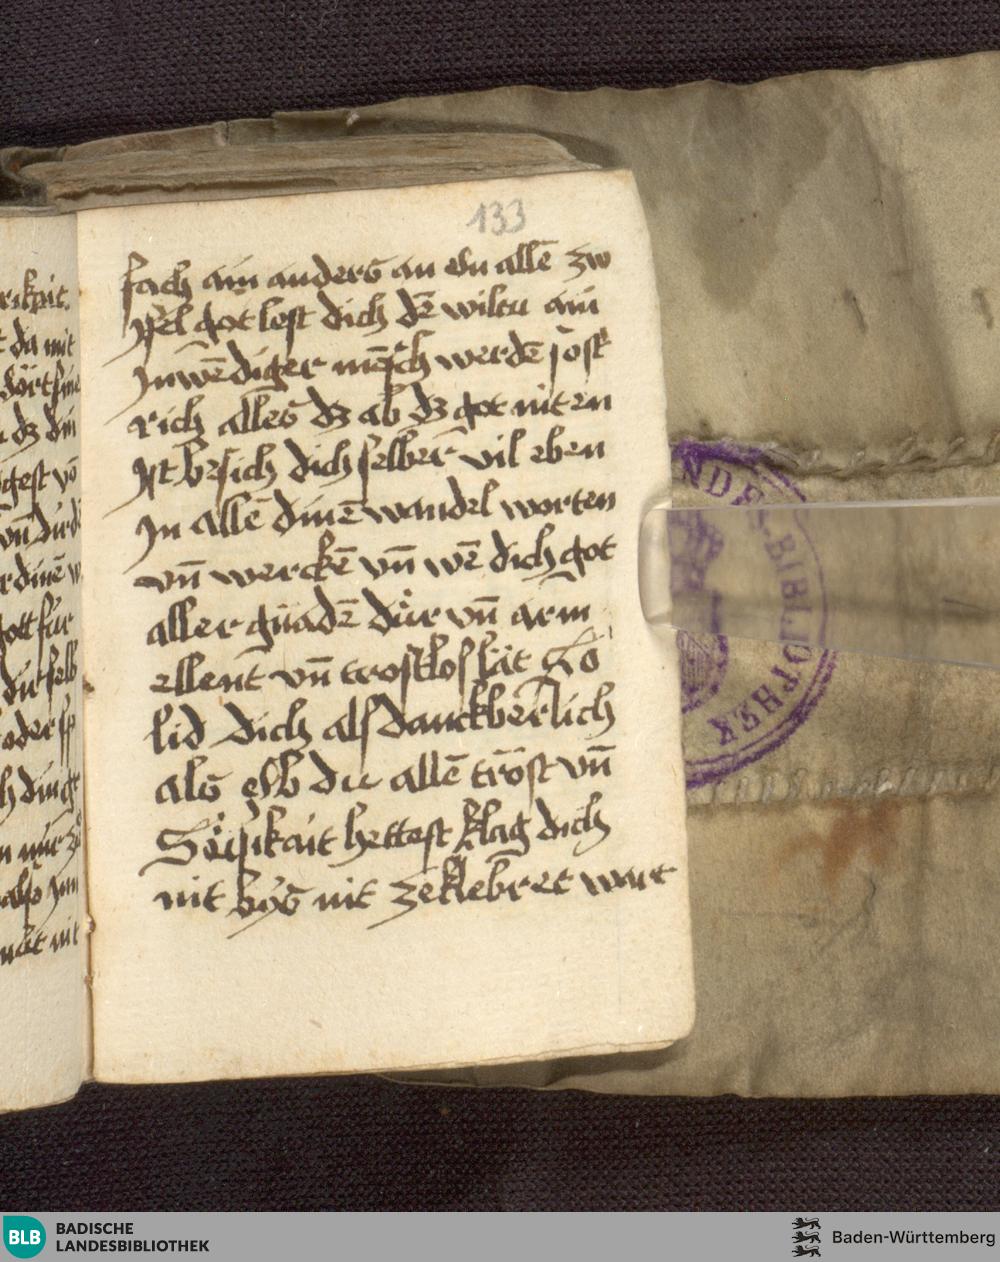 133
fach ain anders an ein allē zw
yfel got lost dich dē wiltu ain
Jnwēdiger mēsch werdē so st
rich alles dz ab dz got nit en
Jst besich dich selber vil eben
Jn allē dinē wandel worten
vn̄ werckē vn̄ wē dich got
aller gnadē dür vn̄ arm
ellent vn̄ trostlos lät So
lid dich als danckberlich
als ob du allē tröst vn̄
Süsikait hettest klag dich
nit byg nit ze klebret wart
rikait
da mit
dz din
gest vō
vn̄ durch
dinē w
gott für
du selb
oder
h dinge
n mir
nit
NDES-BIBLIOTHEK
BLB BADISCHE
LANDESBIBLIOTHEK
Baden-Württemberg